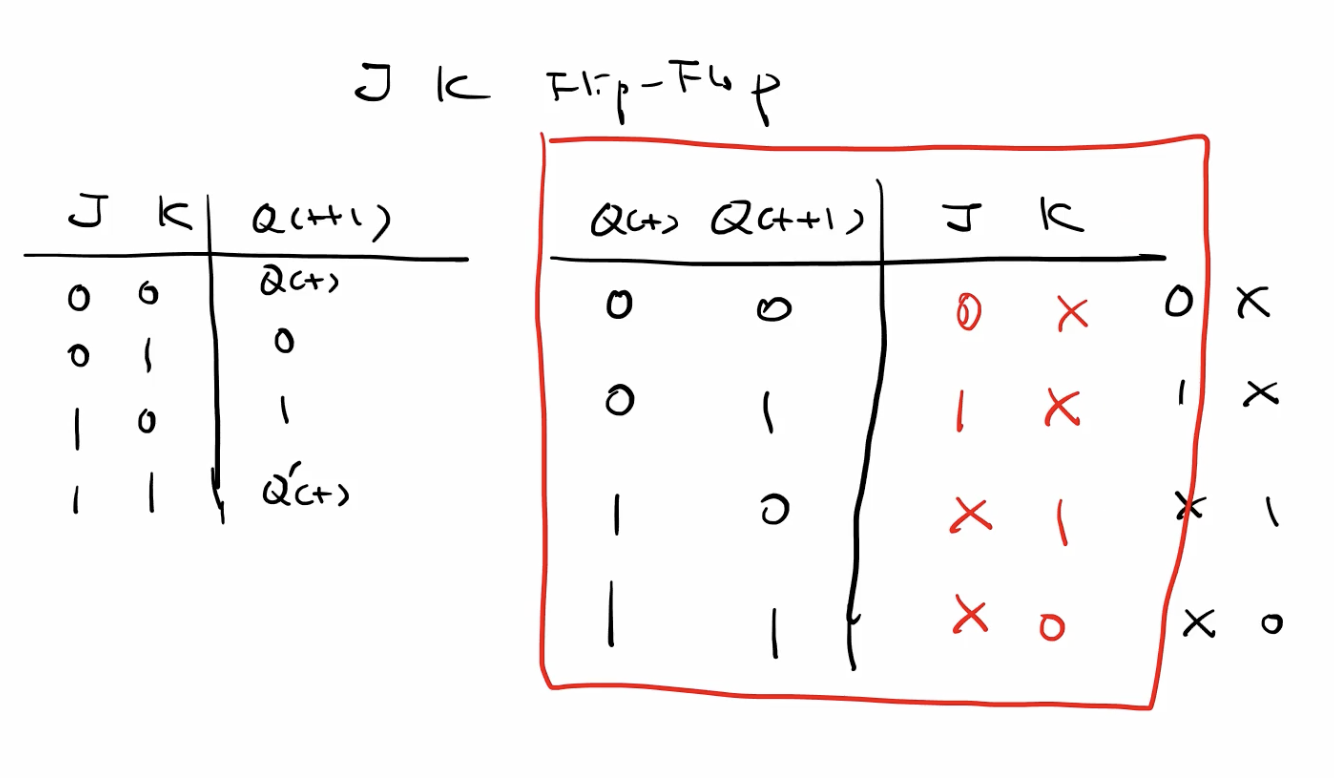 J K Flip-Flop
J K Q(t+1)
0 0 Q(t)
0 1 0
1 0 1
1 1 Q'(t)
Q(t) Q(t+1) J K
0 0 0 X 0 X
0 1 1 X 1 X
1 0 X 1 X 1
1 1 X 0 X 0